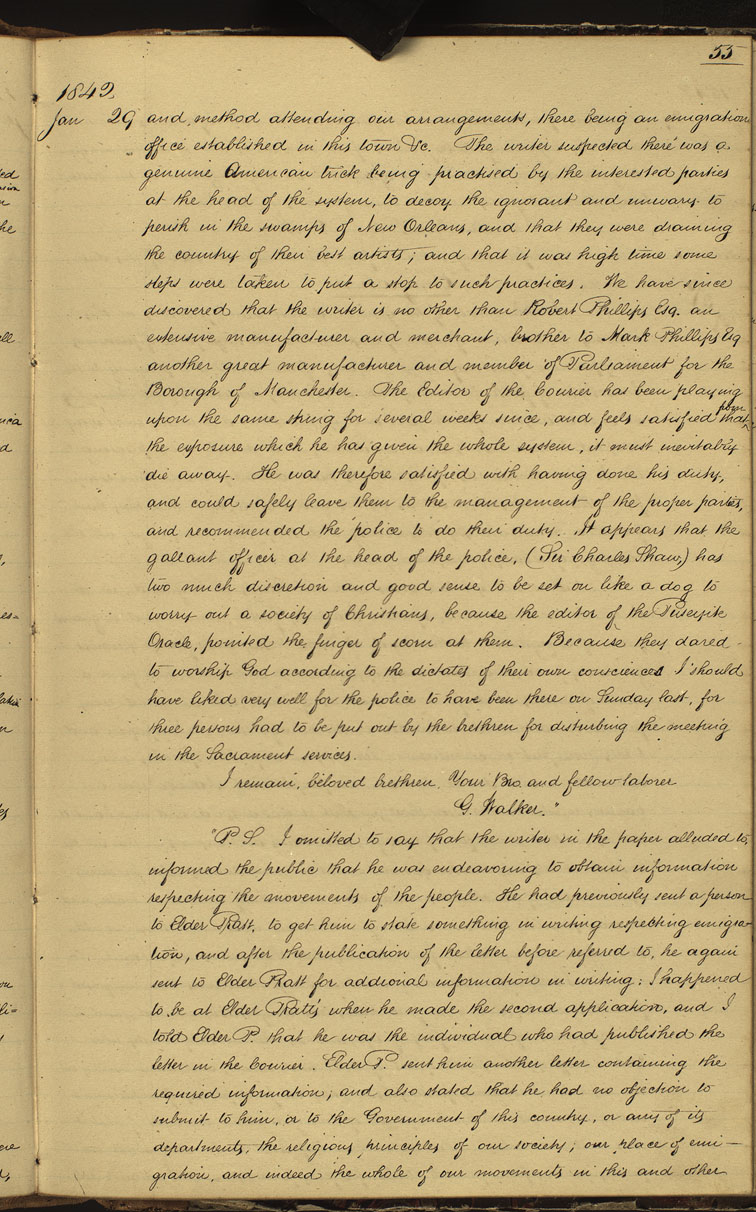 55
1842
Jan 29 and method attending our arrangements, there being an emigration
office established in this town &c. The writer suspected there was a
genuine American trick being practised by the interested parties
at the head of the system, to decoy the ignorant and unwary to
perish in the swamps of New Orleans, and that they were draining
the country of their best artists; and that it was high time some
steps were taken to put a stop to such practices. We have since
discovered that the writer is no other than Robert Phillips Esq. an
extensive manufacturer and merchant, brother to Mark Phillips Esq
another great manufacturer and member of Parliament for the
Borough of Manchester. The Editor of the Courier has been playing
upon the same string for several weeks since, and feels satisfied that from
the exposure which he has given the whole system, it must inevitably
die away. He was therefore satisfied with having done his duty,
and could safely leave them to the management of the proper parties,
and recommended the police to do their duty. It appears that the
gallant officer at the head of the police, (Sir Charles Shaw,) has
two much discretion and good sense to be set on like a dog to
worry out a society of Christians, because the editor of the Puseyite
Oracle, pointed the finger of scorn at them. Because they dared
to worship God according to the dictates of their own consciences I should
have liked very well for the police to have been there on Sunday last, for
three persons had to be put out by the brethren for disturbing the meeting
in the Sacrament services.
I remain, beloved brethren, Your Bro. and fellow laborer
G. Walker."
"P. S. I omitted to say that the writer in the paper alluded to,
informed the public that he was endeavoring to obtain information
respecting the movements of the people. He had previously sent a person
to Elder Pratt, to get him to state something in writing respecting emigra-
tion, and after the publication of the letter before referred to, he again
sent to Elder Pratt for addional information in writing; I happened
to be at Elder Pratt's when he made the second application, and I
told Elder P. that he was the individual who had published the
letter in the Courier. Elder P. sent him another letter containing the
required information; and also stated that he had no objection to
submit to him, or to the Government of this country, or any of its
departments, the religious principles of our society; our place of emi-
gration, and indeed the whole of our movements in this and other